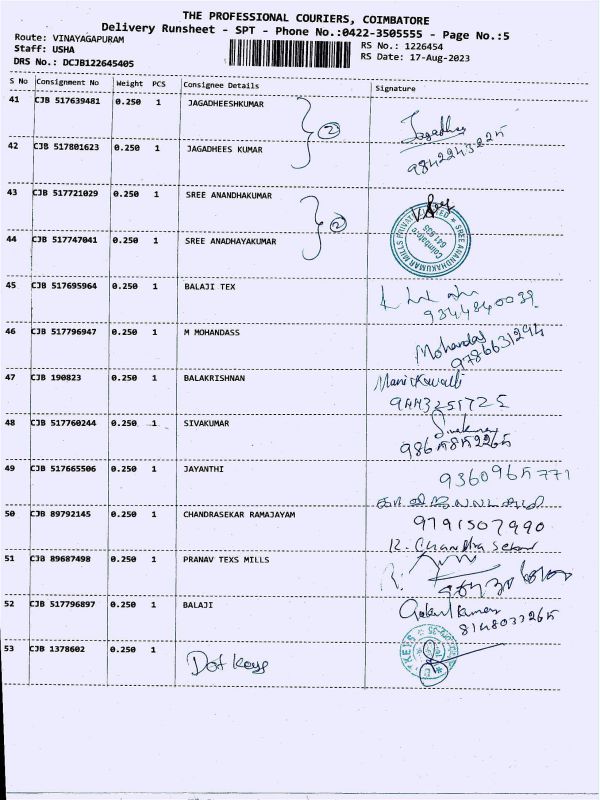 THE PROFESSIONAL COURIERS, COIMBATORE
Delivery Runsheet - SPT - Phone No.:0422-3505555 - Page No.:5
Route: VINAYAGAPURAM
RS No.: 1226454
Staff: USHA
RS Date: 17-Aug-2023
DRS No.: DCJB122645405
S No Consignment No Weight PCS Consignee Details Signature
41 CJB 517639481 0.250 1 JAGADHEESHKUMAR
2
Jagadhees
9842243225
42 CJB 517801623 0.250 1 JAGADHEES KUMAR
43 CJB 517721029 0.250 1 SREE ANANDHAKUMAR
2
SREE ANANDHAKUMAR MILLS PRIVATE LIMITED
Coimbatore
44 CJB 517747041 0.250 1 SREE ANADHAYAKUMAR
45 CJB 517695964 0.250 1 BALAJI TEX
9344840039
46 CJB 517796947 0.250 1 M MOHANDASS
Mohandas
9786631294
47 CJB 190823 0.250 1 BALAKRISHNAN
9443251725
48 CJB 517760244 0.250 1 SIVAKUMAR
Sivakumar
49 CJB 517665506 0.250 1 JAYANTHI
9360965771
50 CJB 89792145 0.250 1 CHANDRASEKAR RAMAJAYAM
9791507990
R. Chandra Sekar
51 CJB 89687498 0.250 1 PRANAV TEXS MILLS
52 CJB 517796897 0.250 1 BALAJI
8148033265
53 CJB 1378602 0.250 1 Dot Keys
KEYS